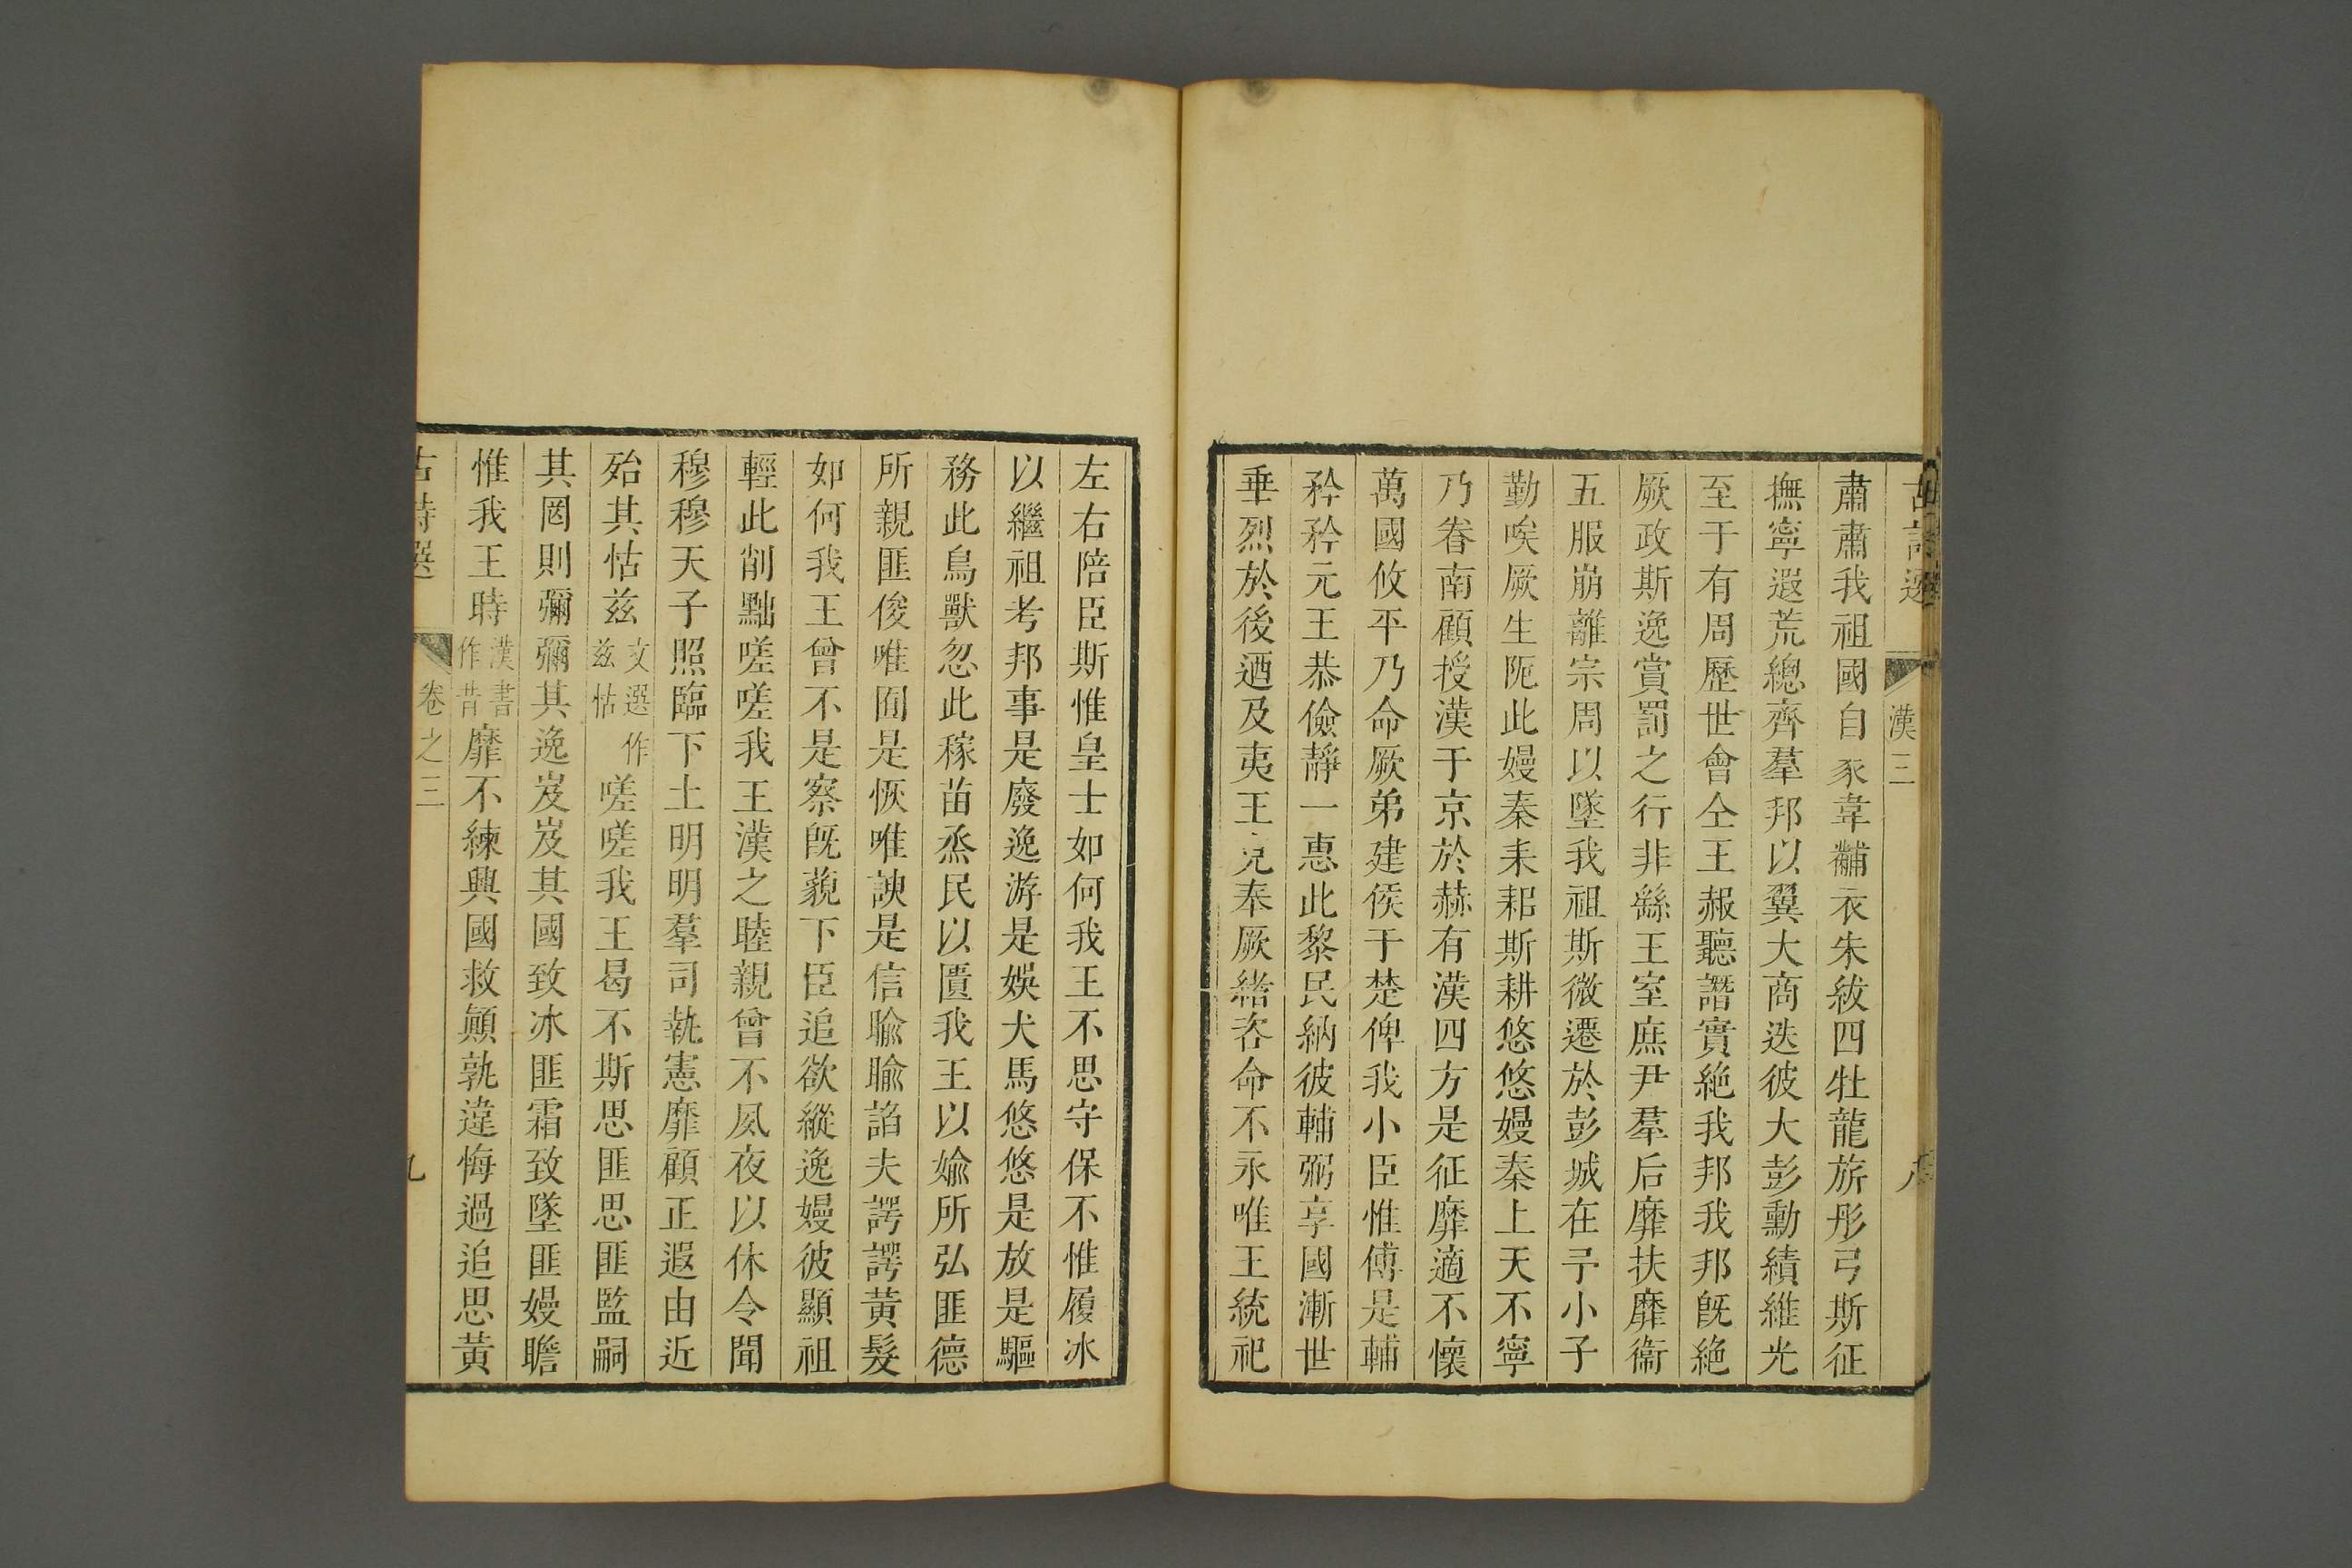 古詩選 漢三 八
肅肅我祖國自豕韋黼衣朱紱四牡龍旂彤弓斯征
撫寧遐荒總齊羣邦以翼大商迭彼大彭勳績維光
至于有周歷世會仝王赧聽譖實絶我邦我邦旣絶
厥政斯逸賞罰之行非繇王室庶尹羣后靡扶靡衞
五服崩離宗周以墜我祖斯微遷於彭城在予小子
勤唉厥生阨此嫚秦耒耜斯耕悠悠嫚秦上天不寧
乃眷南顧授漢于京於赫有漢四方是征靡適不懷
萬國攸平乃命厥弟建侯于楚俾我小臣惟傅是輔
矜矜元王恭儉靜一惠此黎民納彼輔弼享國漸世
垂烈於後迺及夷王克奉厥緒咨命不永唯王統祀
左右陪臣斯惟皇士如何我王不思守保不惟履冰
以繼祖考邦事是廢逸游是娛犬馬悠悠是放是驅
務此鳥獸忽此稼苗烝民以匱我王以媮所弘匪德
所親匪俊唯囿是恢唯諛是信睮睮諂夫諤諤黃髮
如何我王曾不是察旣藐下臣追欲縱逸嫚彼顯祖
輕此削黜嗟嗟我王漢之睦親曾不夙夜以休令聞
穆穆天子照臨下土明明羣司執憲靡顧正遐由近
殆其怙兹文選作兹怙嗟嗟我王曷不斯思匪思匪監嗣
其罔則彌彌其逸岌岌其國致冰匪霜致墜匪嫚瞻
惟我王時漢書作昔靡不練興國救顚孰違悔過追思黃
古詩選 卷之三 九